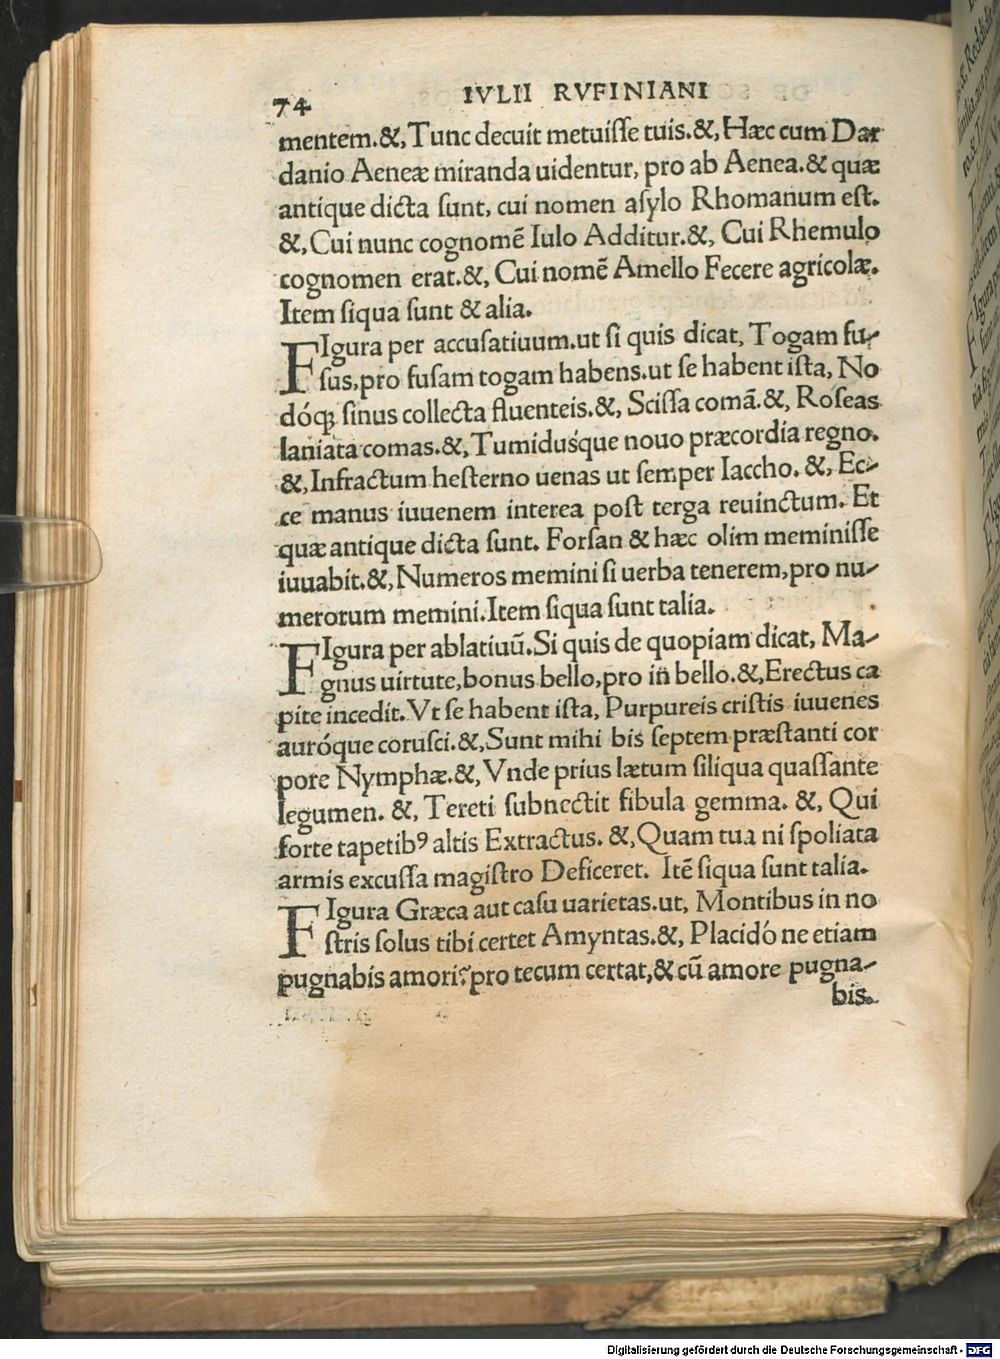 74 IVLII RVFINIANI
mentem.&, Tunc decuit metuiſſe tuis.&, Hæc cum Dar
danio Aeneæ miranda uidentur, pro ab Aenea.& quæ
antique dicta sunt, cui nomen aſylo Rhomanum eſt.
&, Cui nunc cognomẽ Iulo Additur.&, Cui Rhemulo
cognomen erat.&, Cui nomẽ Amello Fecere agricolæ.
Item ſiqua ſunt & alia.
FIgura per accuſatiuum.ut ſi quis dicat, Togam fu-
ſus, pro fuſam togam habens.ut ſe habent iſta, No
dóq; ſinus collecta fluenteis.&, Sciſſa comã.&, Roſeas
laniata comas.&, Tumidúsque nouo præcordia regno.
&, Infractum heſterno uenas ut ſemper Iaccho. &, Ec-
ce manus iuuenem interea poſt terga reuinctum. Et
quæ antique dicta ſunt. Forſan & hæc olim meminiſſe
iuuabit.&, Numeros memini ſi uerba tenerem, pro nu-
merorum memini. Item ſiqua ſunt talia.
FIgura per ablatiuũ. Si quis de quopiam dicat, Ma-
gnus uirtute, bonus bello, pro in bello.&, Erectus ca
pite incedit. Vt ſe habent iſta, Purpureis criſtis iuuenes
auróque coruſci.&, Sunt mihi bis ſeptem præſtanti cor
pore Nymphæ.&, Vnde prius lætum ſiliqua quaſſante
legumen. &, Tereti ſubnectit fibula gemma. &, Qui
forte tapetibꝰ altis Extractus. &, Quam tua ni ſpoliata
armis excuſſa magiſtro Deficeret. Itẽ ſiqua ſunt talia.
FIgura Græca aut caſu uarietas.ut, Montibus in no
ſtris ſolus tibi certet Amyntas.&, Placidó ne etiam
pugnabis amori? pro tecum certat, & cũ amore pugna-
bis.
Digitalisierung gefördert durch die Deutsche Forschungsgemeinschaft - DFG